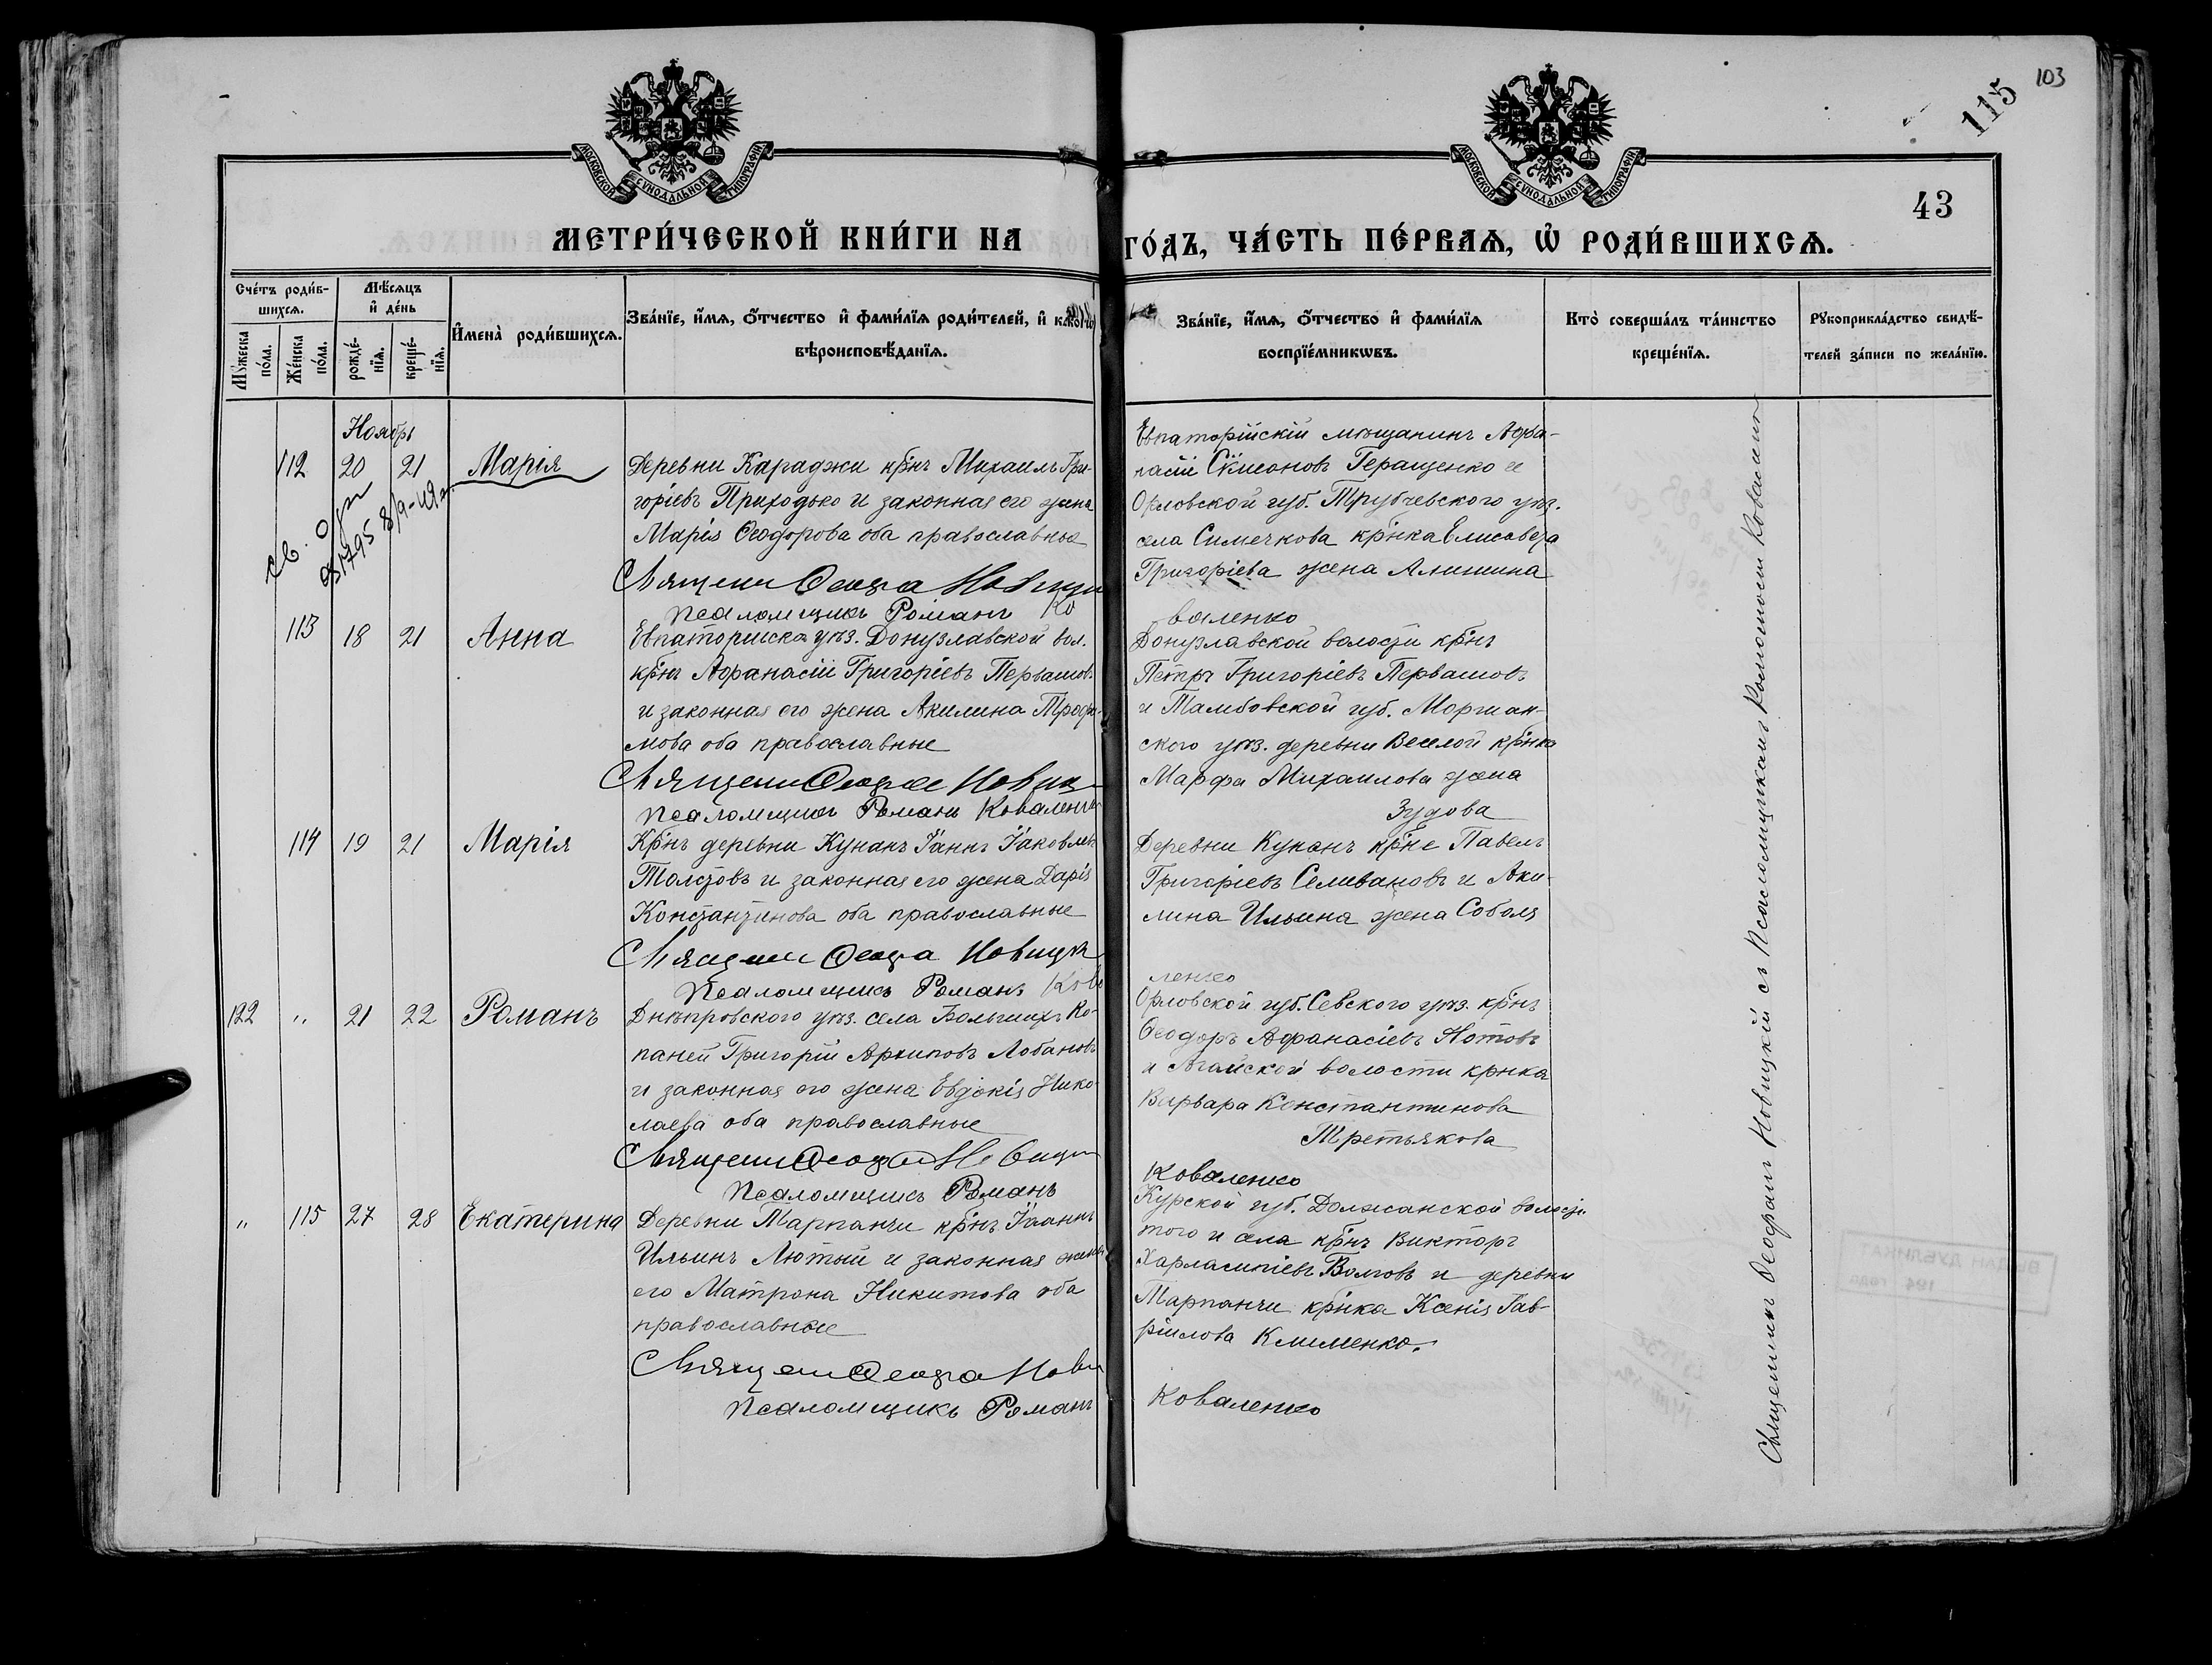 103
115
43
МОСКОВСКОЙ СѴНОДАЛЬНОЙ ТИПОГРАФІИ
МОСКОВСКОЙ СѴНОДАЛЬНОЙ ТИПОГРАФІИ
МЕТРИ́ЧЕСКОЙ КНИ́ГИ НА ГО́ДЪ, ЧА́СТЬ ПЕ́РВАѦ, Ѡ РОДИ́ВШИХСѦ.
Сче́тъ роди́в-
шихсѧ.
Мꙋ́жеска по́ла.
Же́нска по́ла.
Мѣ́сѧцъ и де́нь
рожде́-
нїѧ.
креще́-
нїѧ.
И҆мена̀ роди́вшихсѧ.
Зва́нїе, и҆́мѧ, ѻ҆́тчество и҆ фами́лїѧ роди́телей, и҆
вѣроисповѣ́данїѧ.
Зва́нїе, и҆́мѧ, ѻ҆́тчество и҆ фами́лїѧ
воспрїе́мникѡвъ.
Кто̀ соверша́лъ та́инство
креще́нїѧ.
Рꙋкоприкла́дство свидѣ́-
телей за́писи по жела́нїю.
Ноябрь
112 20 21 Марія
Деревни Караджи крнъ Михаилъ Гри-
горіевъ Приходько и законная его жена
Марія Ѳеодорова оба православные
Священ Ѳеофа Новицк
Псаломщикъ Романъ Коваленко
Евпаторійскій мѣщанинъ Афа-
насій Симеоновъ Геращенко и
Орловской губ. Трубчевского уѣз.
села Симечкова крнка Елисавета
Григоріева жена Алишина
113 18 21 Анна
Евпаторійска уѣз. Донузлавской вол.
крнъ Афанасій Григоріевъ Первашовъ
и законная его жена Акилина Трофи-
мова оба православные
Священ Ѳеофа Новиц
Псаломщикъ Романъ Коваленко
Донузлавской волости крнъ
Петръ Григоріевъ Первашовъ
и Тамбовской губ. Моршан-
ского уѣз. деревни Веселой крнка
Марфа Михаилова жена
Зудова
114 19 21 Марія
Крнъ деревни Кунанъ Іаннъ Іаковлевъ
Толстовъ и законная его жена Дарія
Константинова оба православные
Священ Ѳеофа Новицк
Псаломщикъ Романъ Коваленко
Деревни Кунанъ крне Павелъ
Григоріевъ Селивановъ и Аки-
лина Ильина жена Соболя
122 " 21 22 Романъ
Днѣпровского уѣз. села Большихъ Ко-
паней Григорій Архиповъ Лобановъ
и законная его жена Евдокія Нико-
лаева оба православные
Священ Ѳеофа Новицк
Псаломщикъ Романъ Коваленко
Орловской губ. Севского уѣз. крнъ
Ѳеодоръ Афанасіевъ Нотовъ
и Агайской волости крнка
Варвара Константинова
Третьякова
" 115 27 28 Екатерина
Деревни Тарпанчи крнъ Іаннъ
Ильинъ Лютый и законная жена
его Матрона Никитова оба
православные
Священ Ѳеофа Нови
Псаломщикъ Романъ Коваленко
Курской губ. Должанской волости
того и села крнъ Викторъ
Харлампіевъ Волговъ и деревни
Тарпанчи крнка Ксенія Гав-
ріилова Клименко.
Священникъ Ѳеофанъ Новицкій съ Псаломщикомъ Романомъ Коваленко